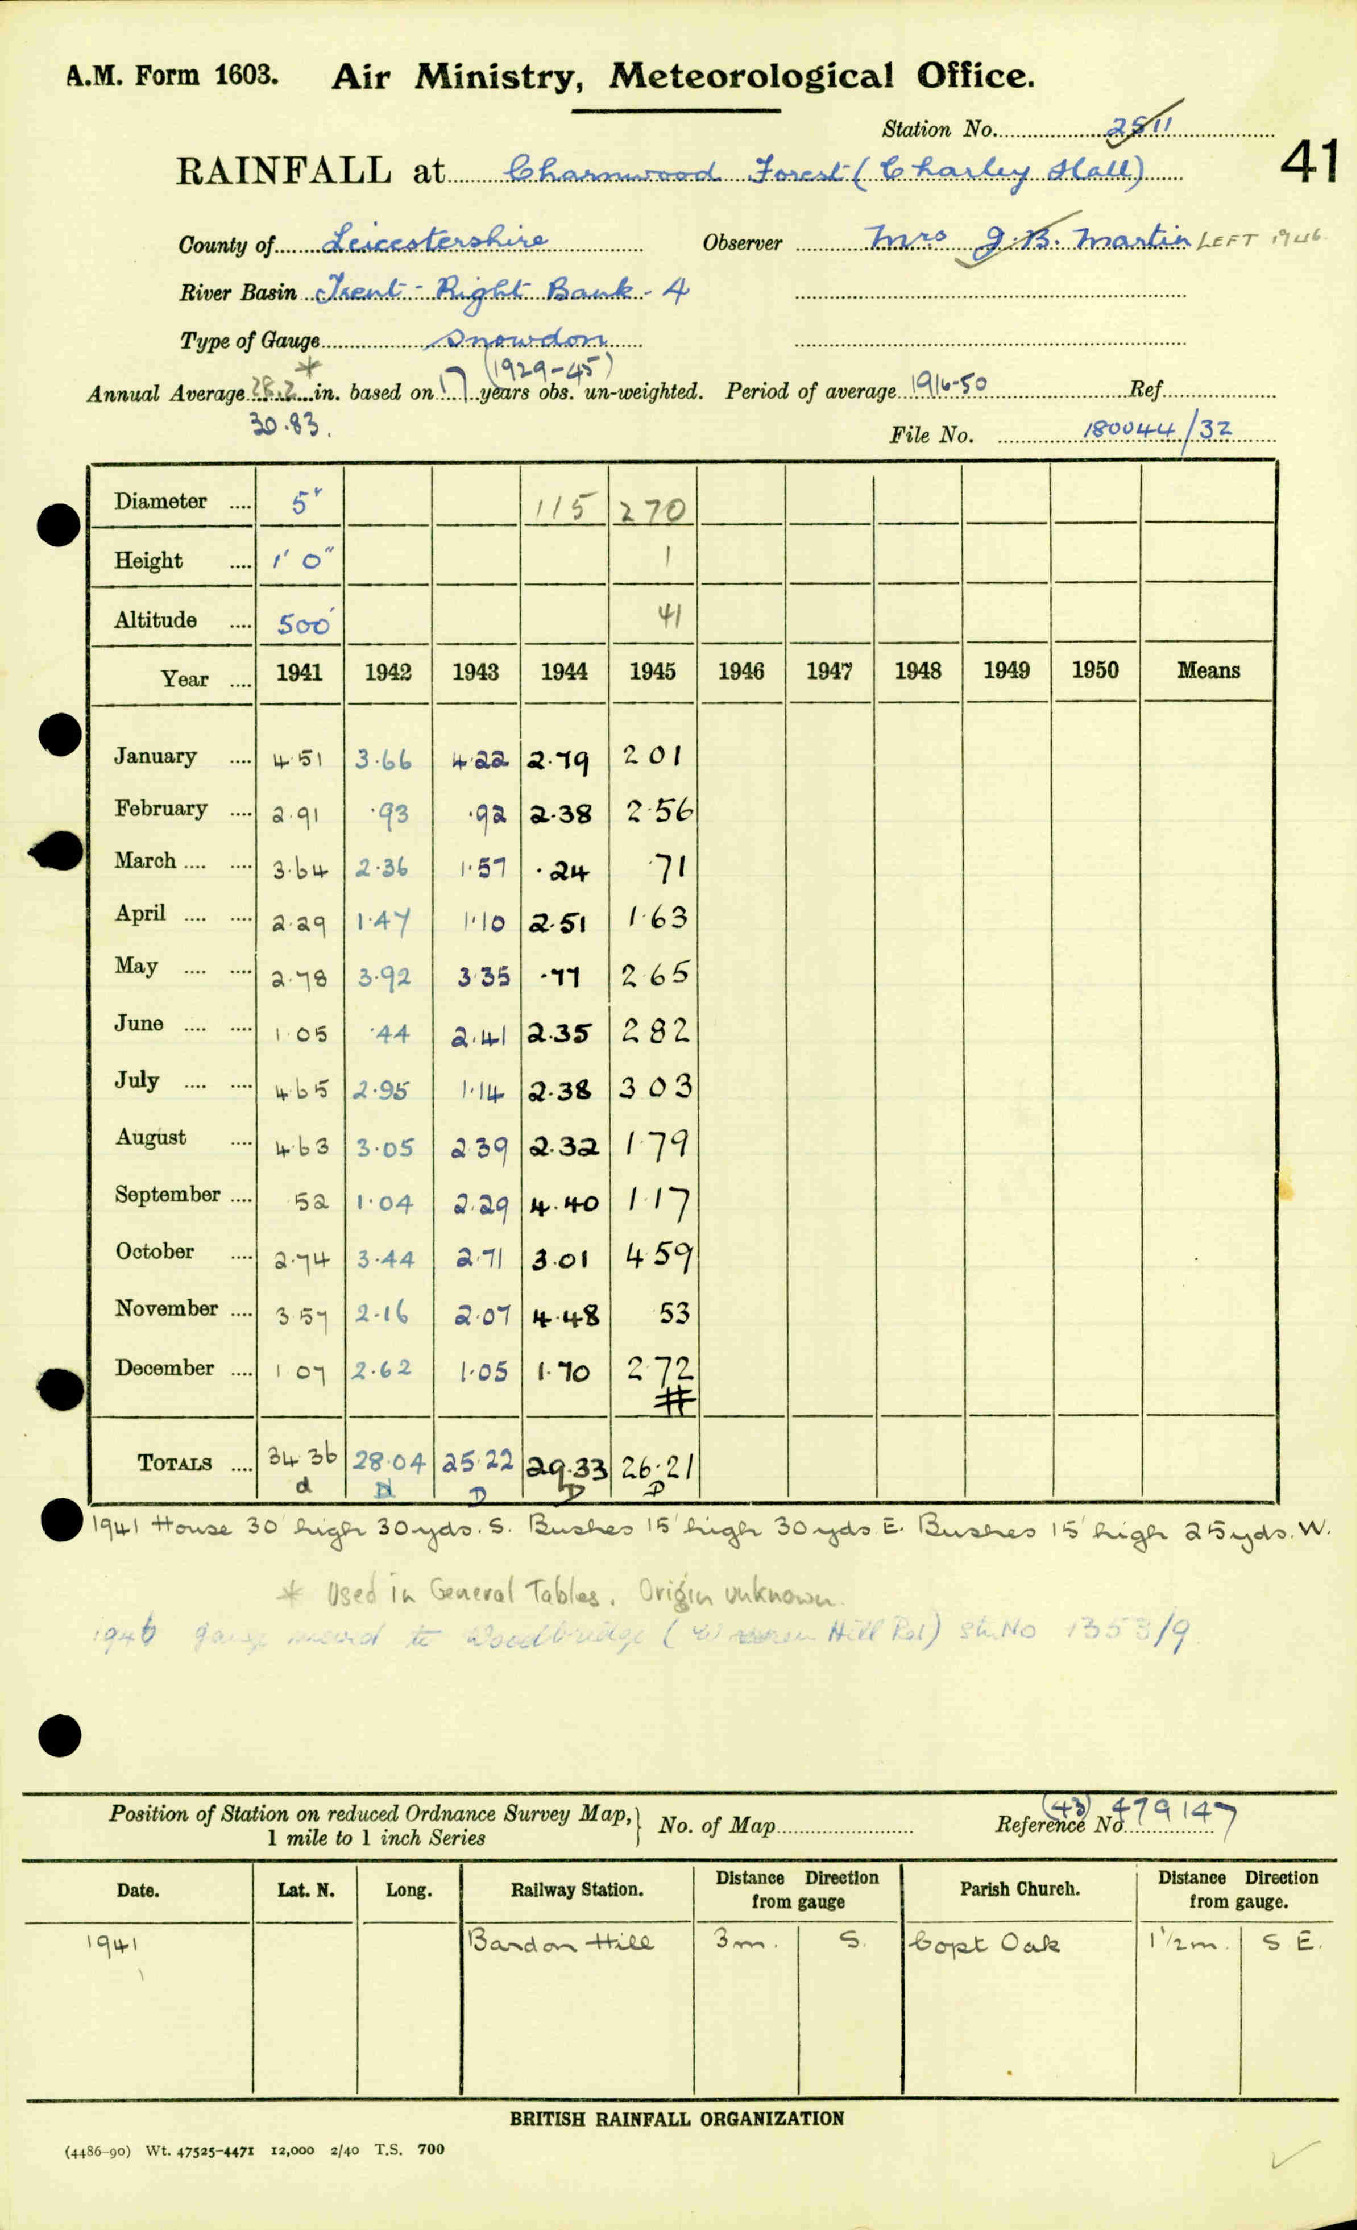 A.M. Form 1603. Air Ministry, Meteorological Office.
Station No. 2511
41
RAINFALL at Charnwood Forest (Charley Hall)
County of Leicestershire Observer Mrs J.B. Martin LEFT 1946
River Basin Trent - Right Bank - 4
Type of Gauge Snowdon
(1929-45)
Annual Average 28.2 * in. based on 17 years obs. un-weighted. Period of average 1916-50 Ref.
30.83.
File No. 180044/32
Diameter .... 5" 115 270
Height .... 1' 0" 1
Altitude .... 500' 41
Year .... 1941 1942 1943 1944 1945 1946 1947 1948 1949 1950 Means
January .... 4.51 3.66 4.22 2.79 2 01
February .... 2.91 .93 .92 2.38 2.56
March .... .... 3.64 2.36 1.57 .24 .71
April .... .... 2.29 1.47 1.10 2.51 1.63
May .... .... 2.78 3.92 3.35 .77 2.65
June .... .... 1.05 .44 2.41 2.35 2 82
July .... .... 4.65 2.95 1.14 2.38 3 03
August .... 4.63 3.05 2.39 2.32 1.79
September .... 52 1.04 2.29 4.40 1.17
October .... 2.74 3.44 2.71 3.01 4.59
November .... 3.57 2.16 2.07 4.48 53
December .... 1 07 2.62 1.05 1.70 2.72
#
TOTALS .... 34.36 28.04 25.22 29.33 26.21
d D D D D
1941 House 30' high 30 yds. S. Bushes 15' high 30 yds E. Bushes 15' high 25 yds. W.
* Used in General Tables. Origin unknown.
1946 gauge moved to Woodbridge ( Hill Rd) Stn No 1353/9
Position of Station on reduced Ordnance Survey Map, } No. of Map Reference No. (43) 479147
1 mile to 1 inch Series
Date. Lat. N. Long. Railway Station. Distance Direction from gauge Parish Church. Distance Direction from gauge.
1941 Bardon Hill 3 m. S. Copt Oak 1½ m. S E.
BRITISH RAINFALL ORGANIZATION
(4486-90) Wt. 47525-4471 12,000 2/40 T.S. 700